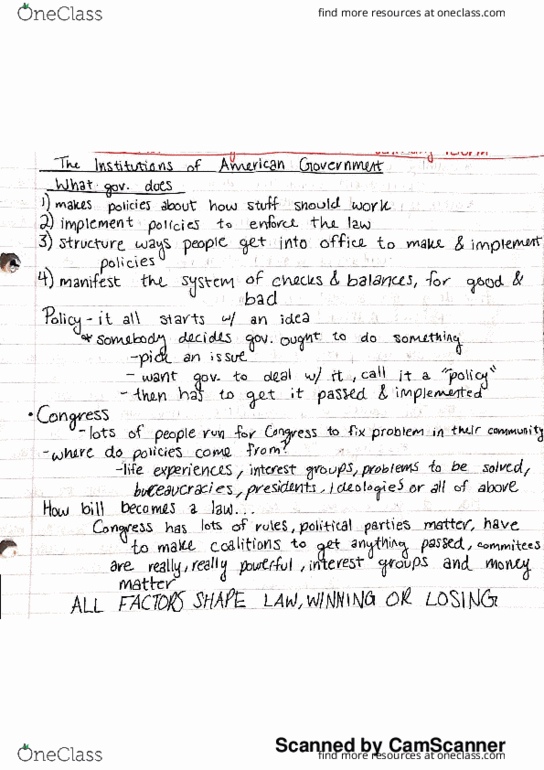 OneClass
find more resources at oneclass.com
The Institutions of American Government
What gov. does
1) makes policies about how stuff should work
2) implement policies to enforce the law
3) structure ways people get into office to make & implement
policies
4) manifest the system of checks & balances, for good &
bad
Policy - it all starts w/ an idea
* somebody decides gov. ought to do something
- pick an issue
- want gov. to deal w/ it, call it a "policy"
- then has to get it passed & implemented
• Congress
- lots of people run for Congress to fix problem in their community
- where do policies come from?
- life experiences, interest groups, problems to be solved,
bureaucracies, presidents, ideologies or all of above
How bill becomes a law...
Congress has lots of rules, political parties matter, have
to make coalitions to get anything passed, commitees
are really, really powerful, interest groups and money
matter
ALL FACTORS SHAPE LAW, WINNING OR LOSING
Scanned by CamScanner
OneClass
find more resources at oneclass.com